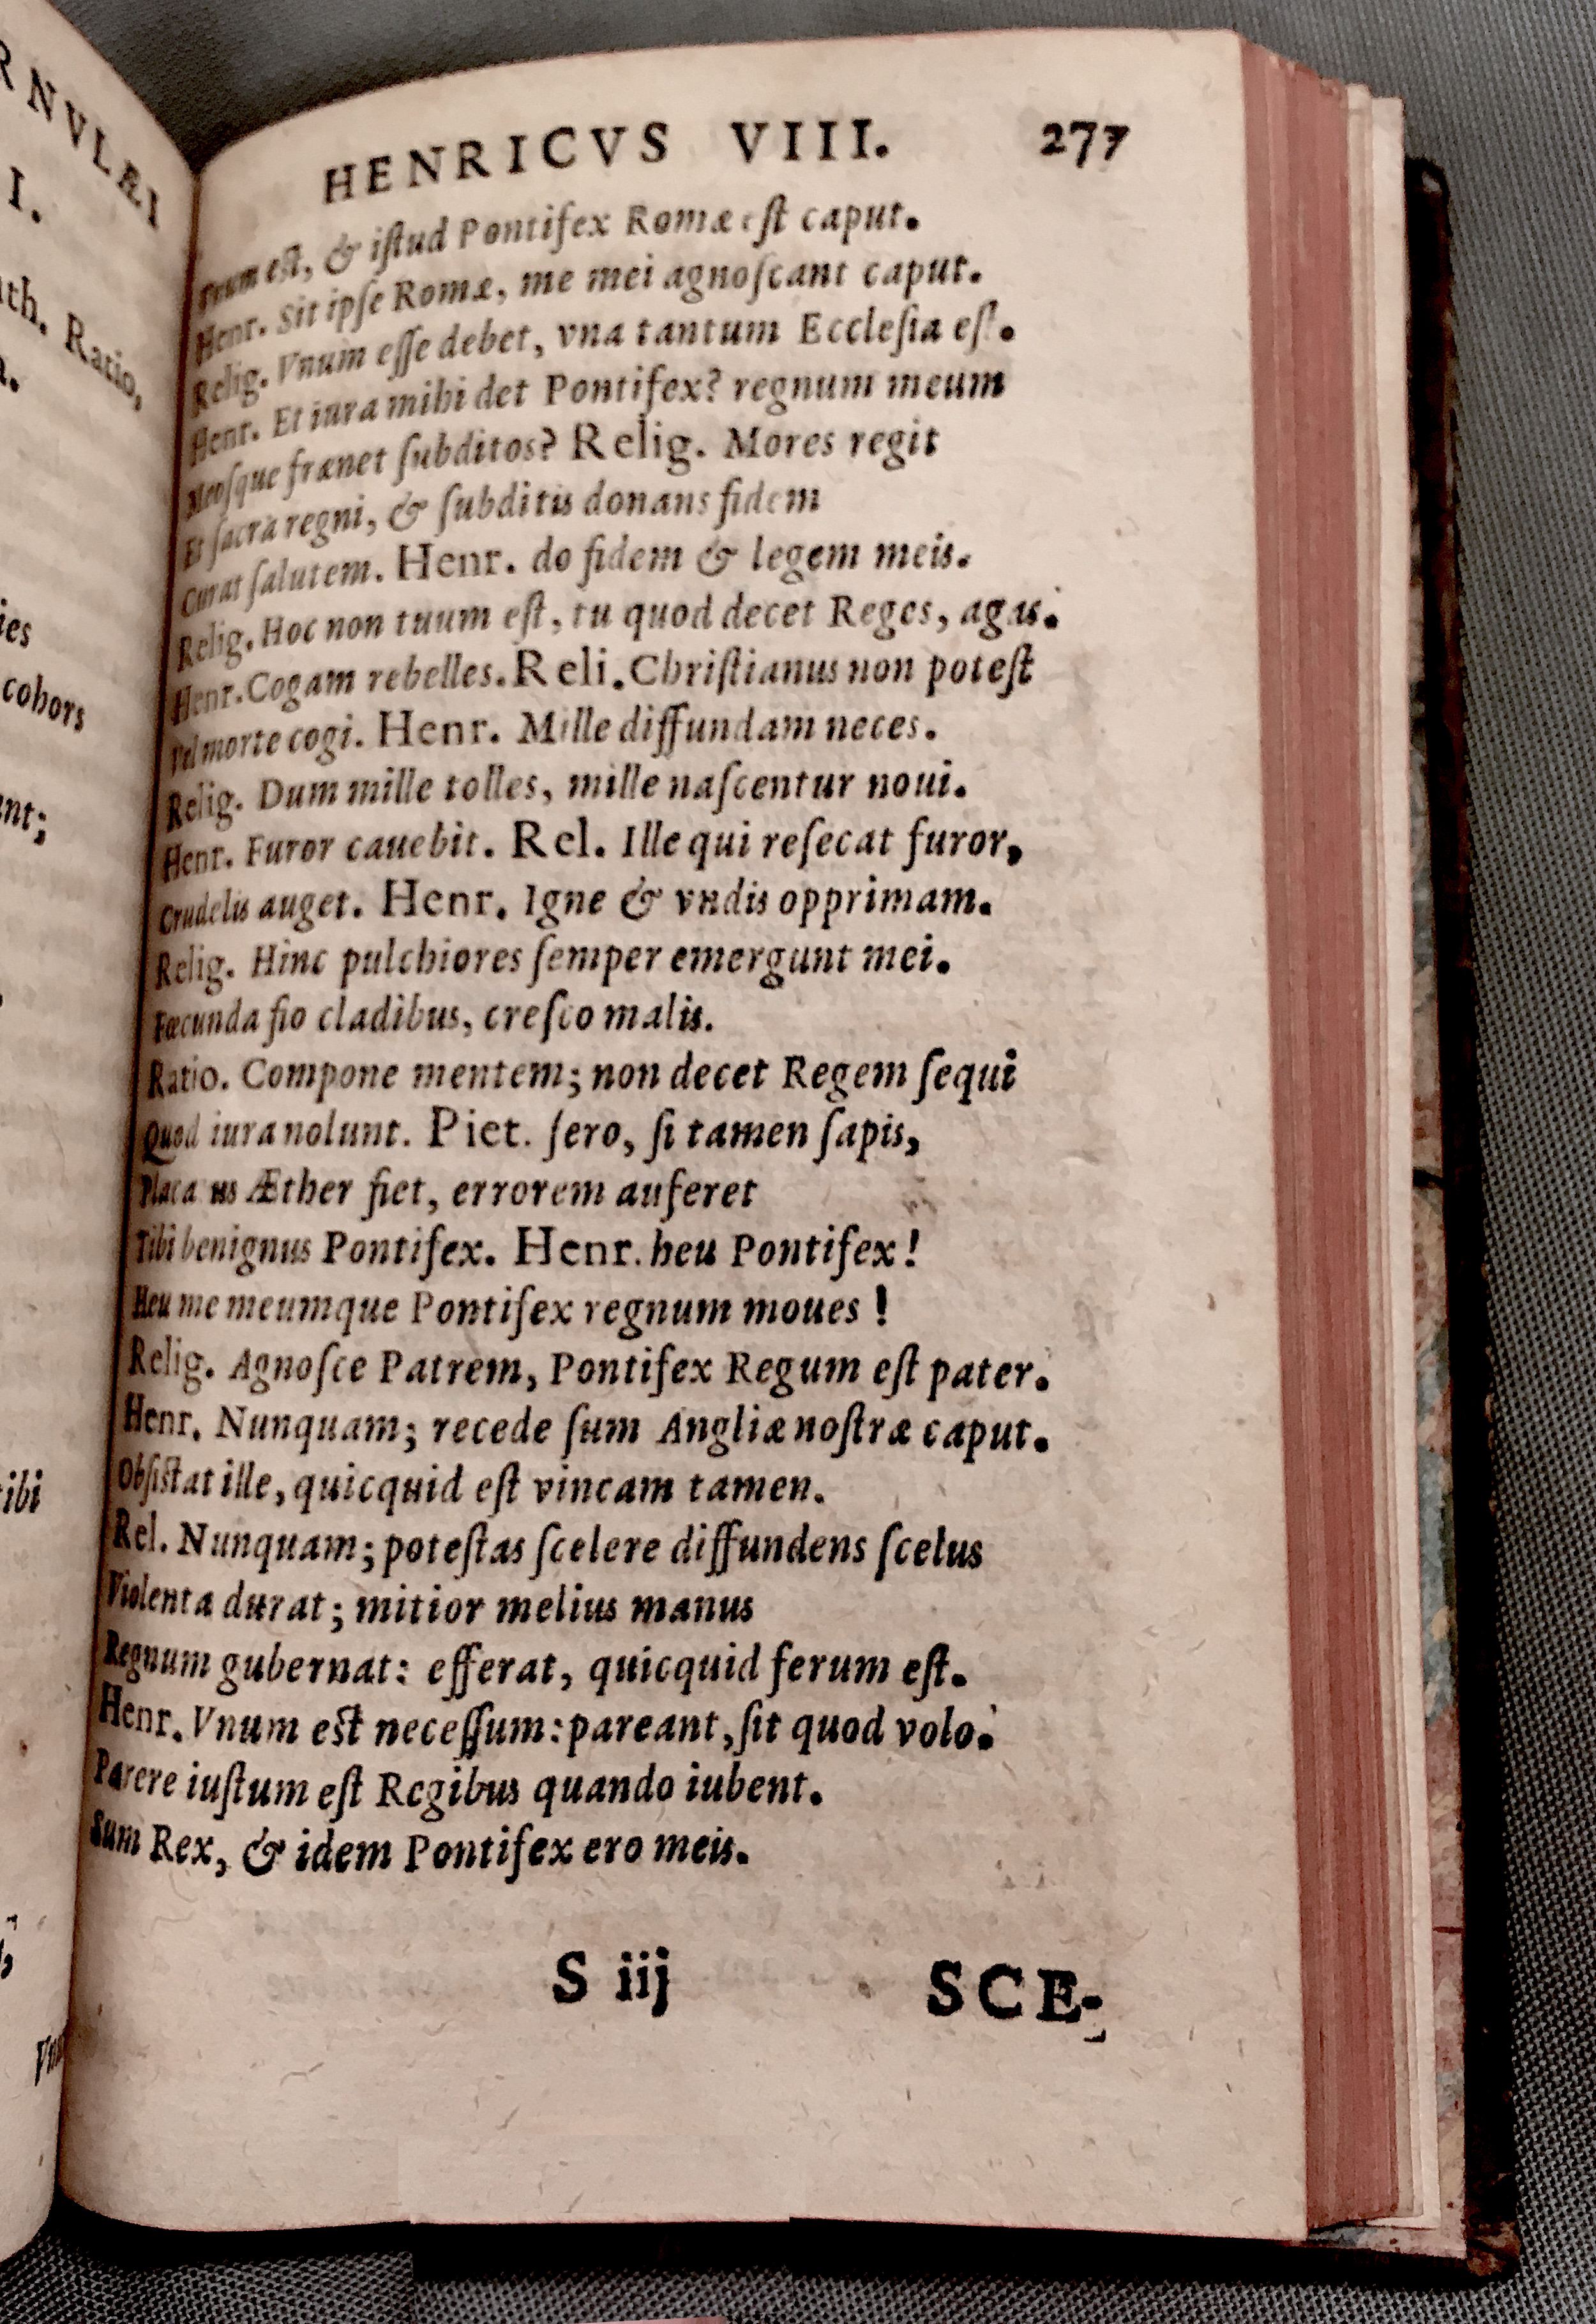 RNVLÆI
I.
th. Ratio,
ies
cohors
nt;
ibi
HENRICVS VIII. 277
est, & iſtud Pontifex Romæ eſt caput.
Henr. Sit ipſe Romæ, me mei agnoſcant caput.
Relig. Vnum eſſe debet, vna tantum Eccleſia eſt.
Henr. Et iura mihi det Pontifex? regnum meum
Meoſque frænet ſubditos? Relig. Mores regit
Et ſacra regni, & ſubditis donans fidem
Curat ſalutem. Henr. do fidem & legem meis.
Relig. Hoc non tuum eſt, tu quod decet Reges, agas.
Henr. Cogam rebelles. Reli. Chriſtianus non poteſt
Vel morte cogi. Henr. Mille diffundam neces.
Relig. Dum mille tolles, mille naſcentur noui.
Henr. Furor cauebit. Rel. Ille qui reſecat furor,
Crudelis auget. Henr. Igne & vndis opprimam.
Relig. Hinc pulchiores ſemper emergunt mei.
Fœcunda fio cladibus, creſco malis.
Ratio. Compone mentem; non decet Regem ſequi
Quod iura nolunt. Piet. ſero, ſi tamen ſapis,
Placa us Æther fiet, errorem auferet
Tibi benignus Pontifex. Henr. heu Pontifex!
Heu me meumque Pontifex regnum moues!
Relig. Agnoſce Patrem, Pontifex Regum eſt pater.
Henr. Nunquam; recede ſum Angliæ noſtræ caput.
Obſiſtat ille, quicquid eſt vincam tamen.
Rel. Nunquam; poteſtas ſcelere diffundens ſcelus
Violenta durat; mitior melius manus
Regnum gubernat: efferat, quicquid ferum eſt.
Henr. Vnum est neceſſum: pareant, ſit quod volo.
Parere iuſtum eſt Regibus quando iubent.
Sum Rex, & idem Pontifex ero meis.
S iij SCE-